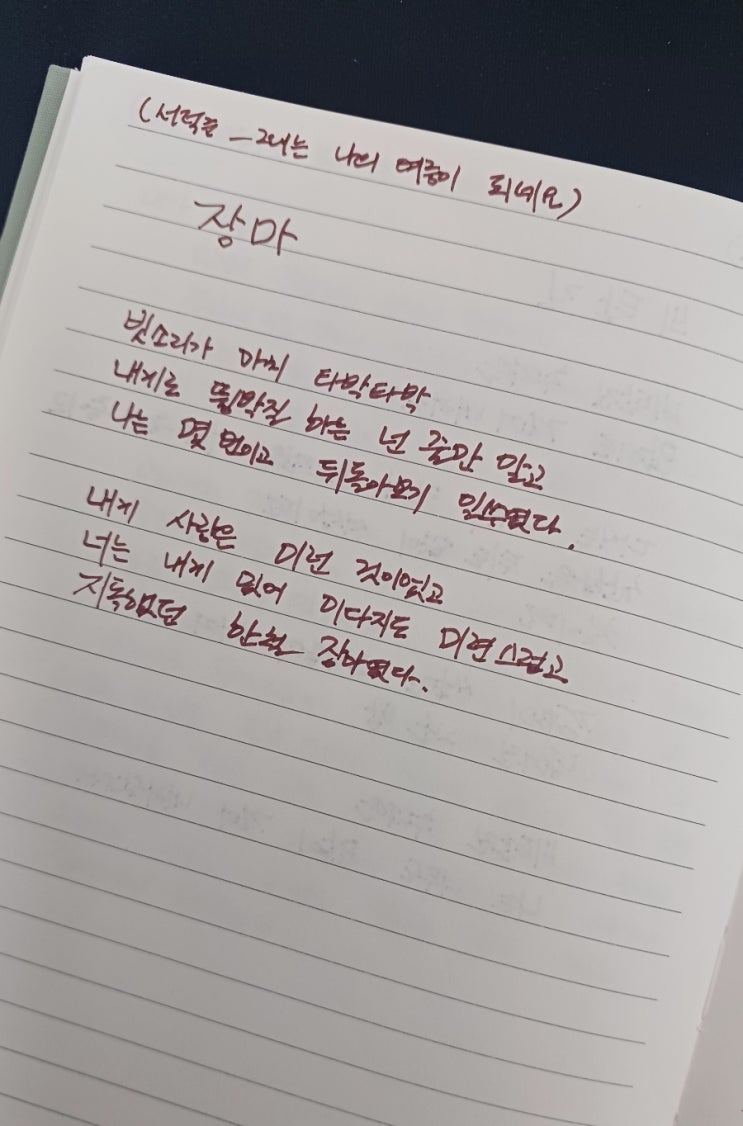 (서덕준 - 그대는 나의 여름이 되네요)
장마
빗소리가 마치 타박타박
내게로 뜀박질 하는 넌 줄만 알고
나는 몇 번이고 뒤돌아보기 일쑤였다.
내게 사랑은 이런 것이었고
너는 내게 있어 이다지도 미련스럽고
지독했던 한철 장마였다.